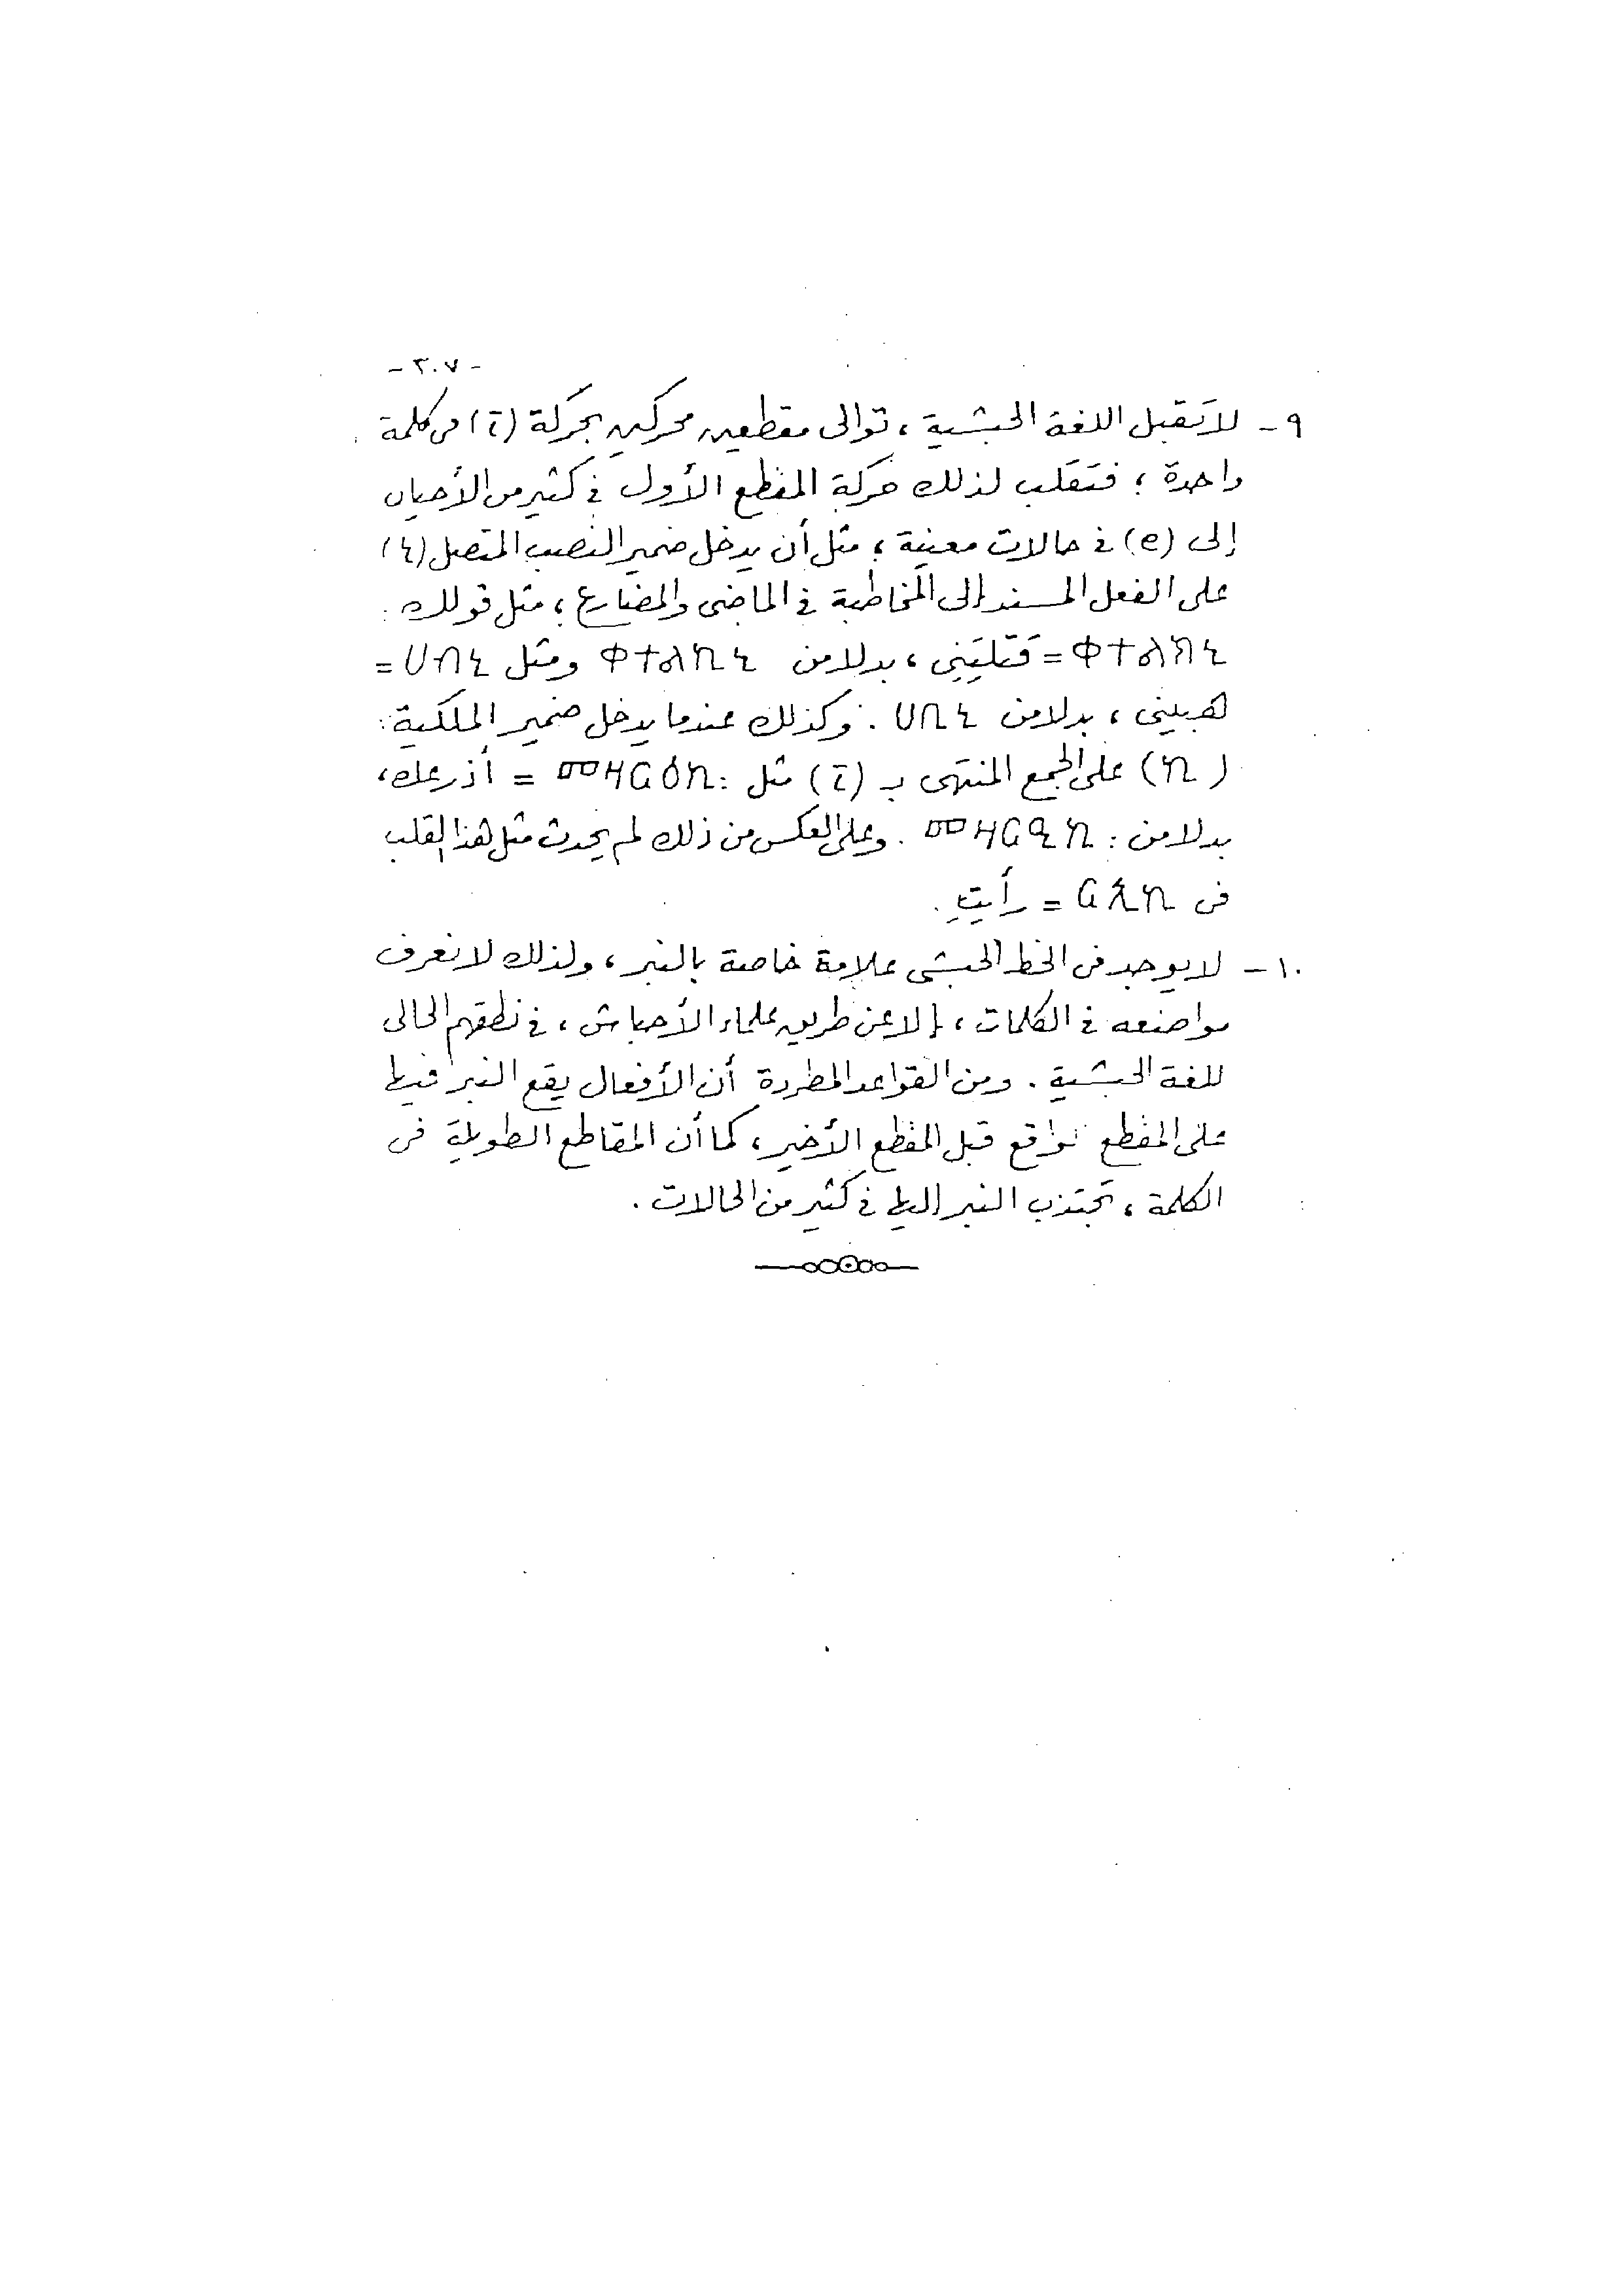 - ٣٠٧ -
٩ - لا تقبل اللغة الحبشية ، توالى مقطعين محركين بحركة (ī) فى كلمة
واحدة ؛ فتقلب لذلك حركة المقطع الأول فى كثير من الأحيان
إلى (e) فى حالات معينة ؛ مثل أن يدخل ضمير النصب المتصل (ኒ)
على الفعل المسند إلى المخاطبة فى الماضى والمضارع ؛ مثل قولك :
ቀተልክኒ = قَتَلْتِنِى ، بدلا من ቀተልኪኒ ومثل ሀብኒ =
هبينى ، بدلا من ሀቢኒ . وكذلك عندما يدخل ضمير الملكية :
(ኪ) على الجمع المنتهى بـ (ī) مثل : መዛርዕኪ = أذرعك ،
بدلا من : መዛርዒኪ . وعلى العكس من ذلك لم يحدث مثل هذا القلب
فى ርኢኪ = رأيتِ .
١٠ - لا يوجد فى الخط الحبشى علامة خاصة بالنبر ، ولذلك لا نعرف
مواضعه فى الكلمات ، إلا عن طريق علماء الأحباش ، فى نطقهم الحالى
للغة الحبشية . ومن القواعد المطردة أن الأفعال يقع النبر فيها
على المقطع الواقع قبل المقطع الأخير ، كما أن المقاطع الطويلة فى
الكلمة ، تجتذب النبر إليها فى كثير من الحالات .